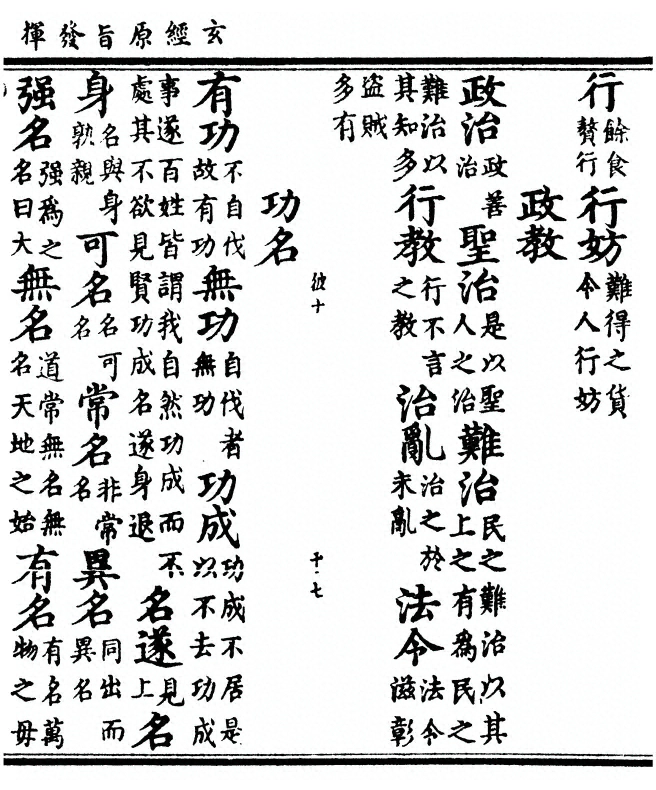 玄經原旨發揮
行餘食贅行行妨難得之貨令人行妨
政教
政治政善治聖治是以聖人之治難治民之難治以其上之有為民之
難治以其知多行教行不言之教治亂治之於未亂法令法令滋彰
盜賊多有
功名
有功不自伐故有功無功自伐者無功功成功成不居是以不去功成
事遂百姓皆謂我自然功成而不處其不欲見賢功成名遂身退名遂見上名
身名與身孰親可名名可名常名非常名異名同出而異名
强名强為之名曰大無名道常無名無名天地之始有名有名萬物之母